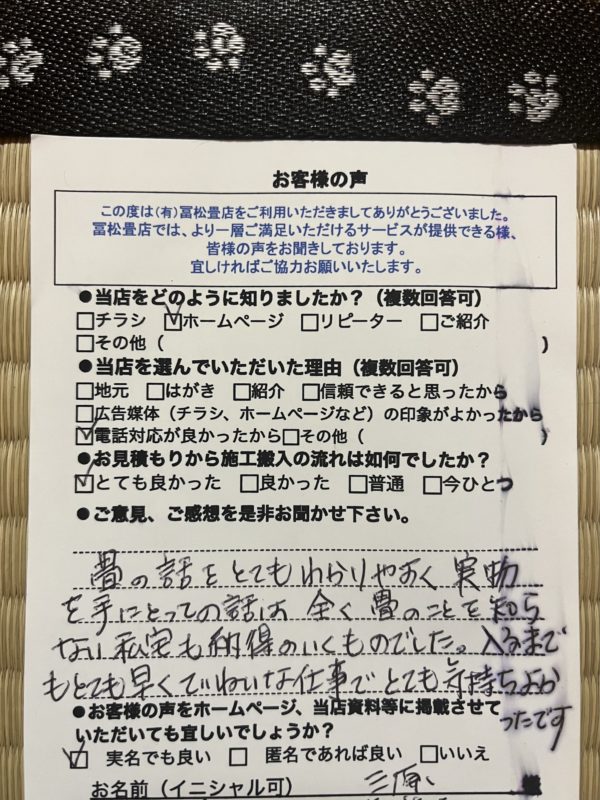 お客様の声
この度は(有)冨松畳店をご利用いただきましてありがとうございました。
冨松畳店では、より一層ご満足いただけるサービスが提供できる様、
皆様の声をお聞きしております。
宜しければご協力お願いいたします。
●当店をどのように知りましたか？（複数回答可）
□チラシ ☑ホームページ □リピーター □ご紹介
□その他（ ）
●当店を選んでいただいた理由（複数回答可）
□地元 □はがき □紹介 □信頼できると思ったから
□広告媒体（チラシ、ホームページなど）の印象がよかったから
☑電話対応が良かったから□その他（ ）
●お見積もりから施工搬入の流れは如何でしたか？
☑とても良かった □良かった □普通 □今ひとつ
●ご意見、ご感想を是非お聞かせ下さい。
畳の話をとてもわかりやすく実物
を手にとっての話は全く畳のことを知ら
ない私達も納得のいくものでした。入るまで
もとても早くていねいな仕事でとても気持ちよか
ったです
●お客様の声をホームページ、当店資料等に掲載させて
いただいても宜しいでしょうか？
☑ 実名でも良い □ 匿名であれば良い □いいえ
お名前（イニシャル可） 三原 様